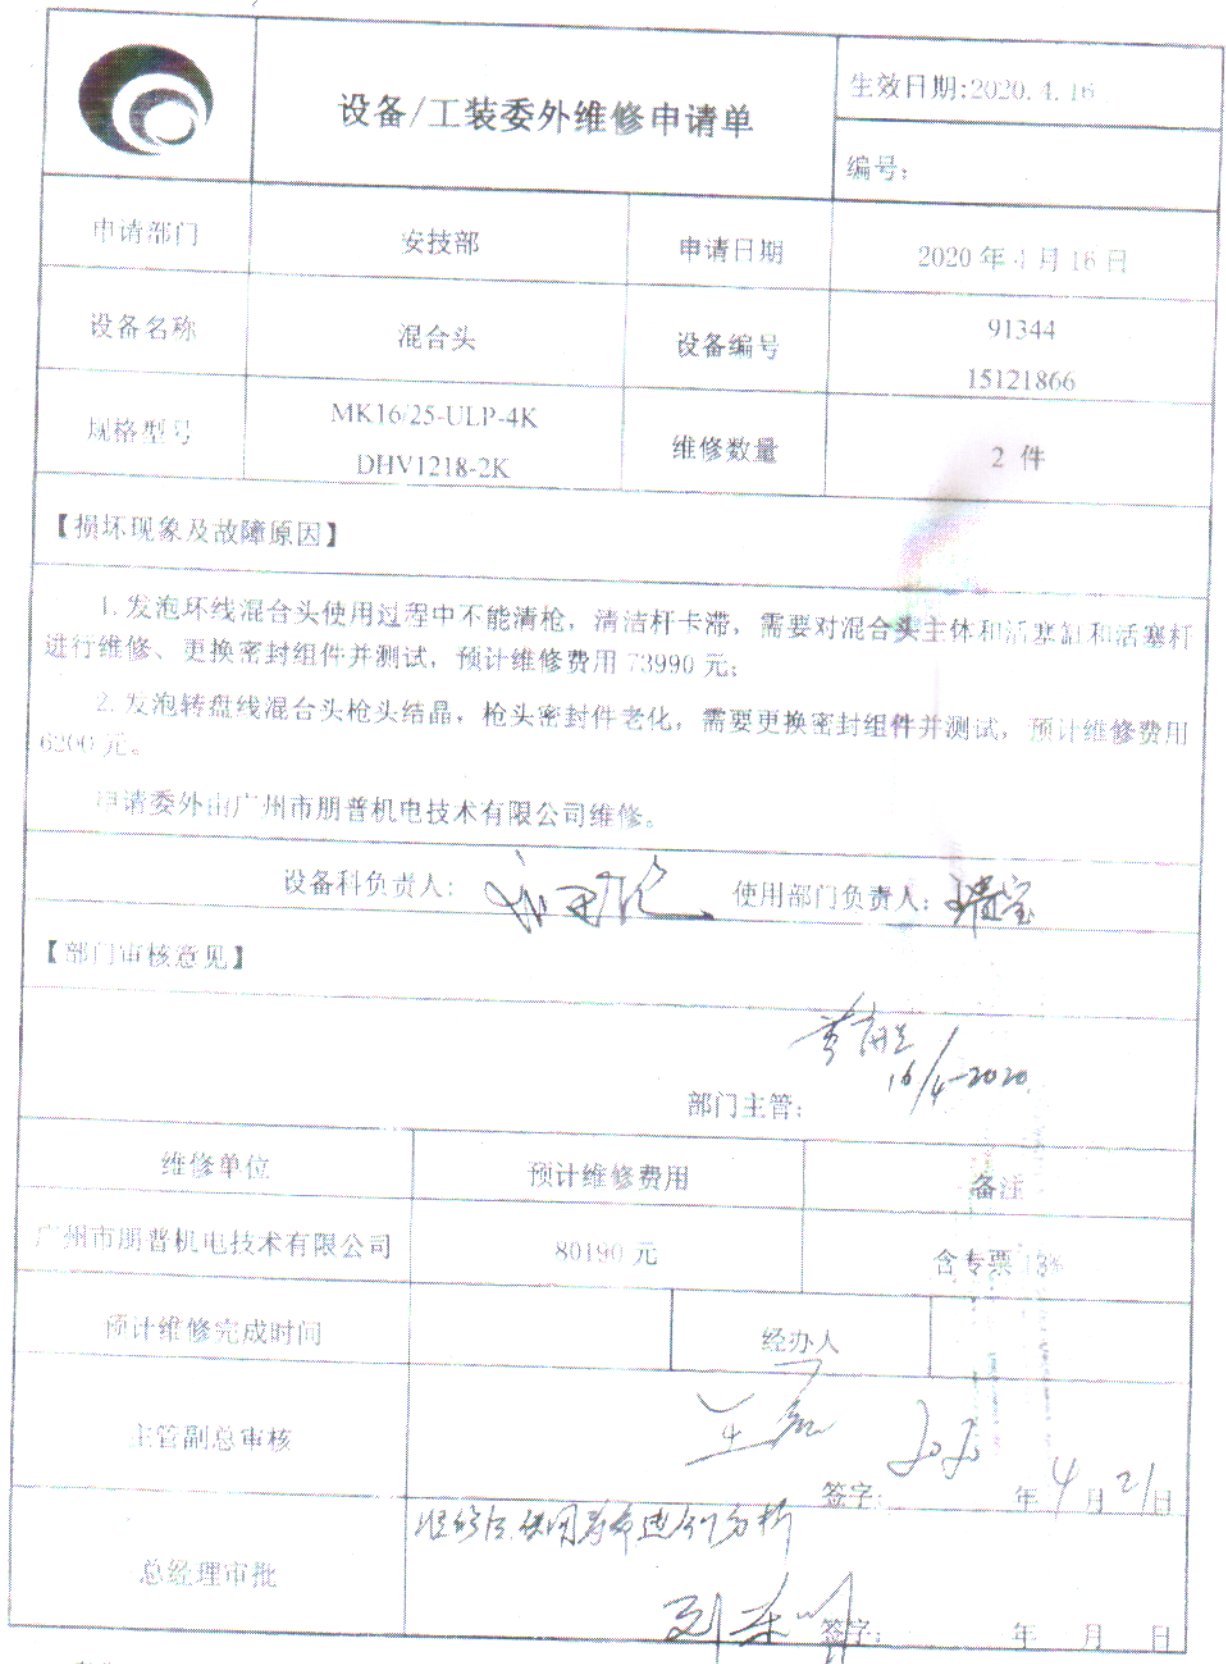 设备/工装委外维修申请单
生效日期:2020.4.16
编号:
申请部门 安技部 申请日期 2020年4月16日
设备名称 混合头 设备编号 91344
15121866
规格型号 MK16/25-ULP-4K
DHV1218-2K
维修数量 2 件
【损坏现象及故障原因】
1. 发泡环线混合头使用过程中不能清枪，清洁杆卡滞，需要对混合头主体和活塞缸和活塞杆
进行维修、更换密封组件并测试，预计维修费用 73990 元;
2. 发泡转盘线混合头枪头结晶，枪头密封件老化，需要更换密封组件并测试，预计维修费用
6200 元。
申请委外由广州市朋普机电技术有限公司维修。
设备科负责人: 使用部门负责人:
【部门审核意见】
16/4-2020
部门主管:
维修单位 预计维修费用 备注
广州市朋普机电技术有限公司 80190 元 含专票 13%
预计维修完成时间 经办人
主管副总审核 签字: 2020 年 4 月 21 日
总经理审批
签字: 年 月 日